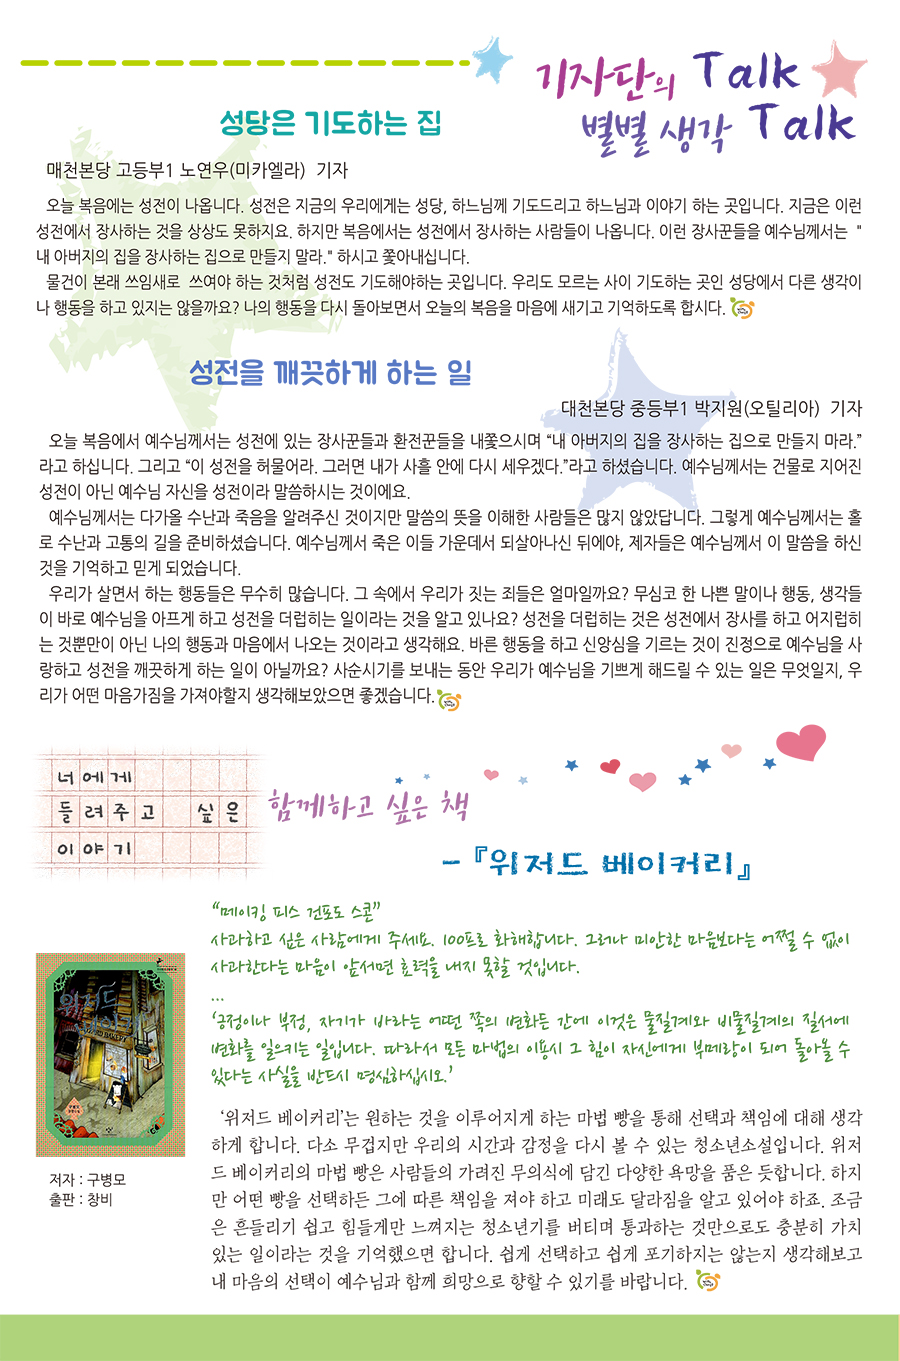 기자단의 Talk
별별 생각 Talk
성당은 기도하는 집
매천본당 고등부1 노연우(미카엘라) 기자
오늘 복음에는 성전이 나옵니다. 성전은 지금의 우리에게는 성당, 하느님께 기도드리고 하느님과 이야기 하는 곳입니다. 지금은 이런
성전에서 장사하는 것을 상상도 못하지요. 하지만 복음에서는 성전에서 장사하는 사람들이 나옵니다. 이런 장사꾼들을 예수님께서는 "
내 아버지의 집을 장사하는 집으로 만들지 말라." 하시고 쫓아내십니다.
물건이 본래 쓰임새로 쓰여야 하는 것처럼 성전도 기도해야하는 곳입니다. 우리도 모르는 사이 기도하는 곳인 성당에서 다른 생각이
나 행동을 하고 있지는 않을까요? 나의 행동을 다시 돌아보면서 오늘의 복음을 마음에 새기고 기억하도록 합시다.
성전을 깨끗하게 하는 일
대천본당 중등부1 박지원(오틸리아) 기자
오늘 복음에서 예수님께서는 성전에 있는 장사꾼들과 환전꾼들을 내쫓으시며 “내 아버지의 집을 장사하는 집으로 만들지 마라.”
라고 하십니다. 그리고 “이 성전을 허물어라. 그러면 내가 사흘 안에 다시 세우겠다.”라고 하셨습니다. 예수님께서는 건물로 지어진
성전이 아닌 예수님 자신을 성전이라 말씀하시는 것이에요.
예수님께서는 다가올 수난과 죽음을 알려주신 것이지만 말씀의 뜻을 이해한 사람들은 많지 않았답니다. 그렇게 예수님께서는 홀
로 수난과 고통의 길을 준비하셨습니다. 예수님께서 죽은 이들 가운데서 되살아나신 뒤에야, 제자들은 예수님께서 이 말씀을 하신
것을 기억하고 믿게 되었습니다.
우리가 살면서 하는 행동들은 무수히 많습니다. 그 속에서 우리가 짓는 죄들은 얼마일까요? 무심코 한 나쁜 말이나 행동, 생각들
이 바로 예수님을 아프게 하고 성전을 더럽히는 일이라는 것을 알고 있나요? 성전을 더럽히는 것은 성전에서 장사를 하고 어지럽히
는 것뿐만이 아닌 나의 행동과 마음에서 나오는 것이라고 생각해요. 바른 행동을 하고 신앙심을 기르는 것이 진정으로 예수님을 사
랑하고 성전을 깨끗하게 하는 일이 아닐까요? 사순시기를 보내는 동안 우리가 예수님을 기쁘게 해드릴 수 있는 일은 무엇일지, 우
리가 어떤 마음가짐을 가져야할지 생각해보았으면 좋겠습니다.
너에게
들려주고 싶은
이야기
함께하고 싶은 책
-『위저드 베이커리』
“메이킹 피스 건포도 스콘”
사과하고 싶은 사람에게 주세요. 100프로 화해합니다. 그러나 미안한 마음보다는 어쩔 수 없이
사과한다는 마음이 앞서면 효력을 내지 못할 것입니다.
...
‘긍정이나 부정, 자기가 바라는 어떤 쪽의 변화든 간에 이것은 물질계와 비물질계의 질서에
변화를 일으키는 일입니다. 따라서 모든 마법의 이용시 그 힘이 자신에게 부메랑이 되어 돌아올 수
있다는 사실을 반드시 명심하십시오.’
위저드
베이커리
저자 : 구병모
출판 : 창비
‘위저드 베이커리’는 원하는 것을 이루어지게 하는 마법 빵을 통해 선택과 책임에 대해 생각
하게 합니다. 다소 무겁지만 우리의 시간과 감정을 다시 볼 수 있는 청소년소설입니다. 위저
드 베이커리의 마법 빵은 사람들의 가려진 무의식에 담긴 다양한 욕망을 품은 듯합니다. 하지
만 어떤 빵을 선택하든 그에 따른 책임을 져야 하고 미래도 달라짐을 알고 있어야 하죠. 조금
은 흔들리기 쉽고 힘들게만 느껴지는 청소년기를 버티며 통과하는 것만으로도 충분히 가치
있는 일이라는 것을 기억했으면 합니다. 쉽게 선택하고 쉽게 포기하지는 않는지 생각해보고
내 마음의 선택이 예수님과 함께 희망으로 향할 수 있기를 바랍니다.